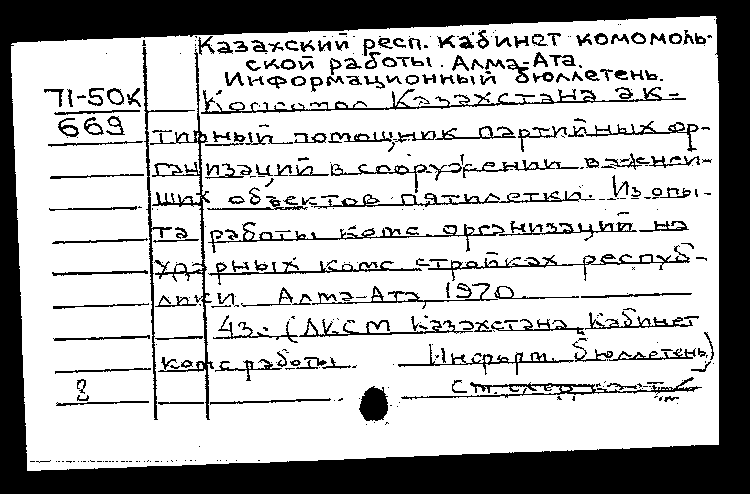 Казахский респ. кабинет комсмоль-
ской работы. Алма-Ата.
Информационный бюллетень.
71-50к
669
Комсомол Казахстана ак-
тивный помощник партийных ор-
ганизаций в сооружении важней-
ших объектов пятилетки. Из опы-
та работы комс. организаций на
ударных комс. стройках респуб-
лики. Алма-Ата, 1970.
43с. (ЛКСМ Казахстана. Кабинет
комс. работы Информ. бюллетень)
8